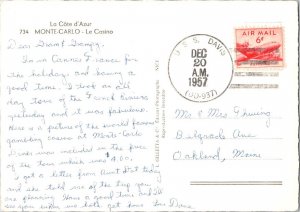 La Côte d'Azur
734 MONTE-CARLO - Le Casino
Dear Diane & Family,
I'm in Cannes, France for
the holiday and having a
good time. I took an all
day tour of the French Riviera
yesterday and it was fabulous.
Here is a picture of the world famous
gambling casino at Monte-Carlo
Drink was included in the price
of the tour which was $4.00.
I got a letter from Aunt Dot today
and she told me of the trip you
are planning. Have a good time and I'll
see you when we both get home. Love
U.S.S. DAVIS
DEC
20
A.M.
1957
(DD-937)
AIR MAIL
6¢
Mr & Mrs
Belgrade Ave
Oakland, Maine